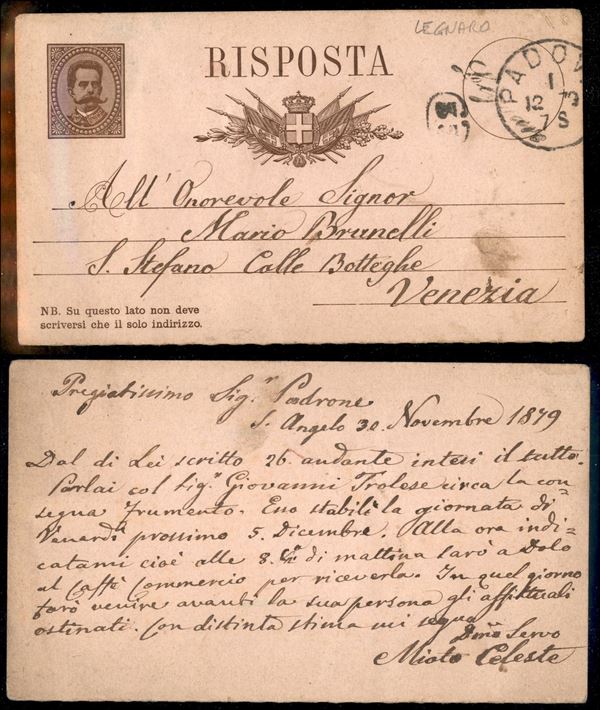 LEGNARO
RISPOSTA
PADOV
1
12 79
7 S
All' Onorevole Signor
Mario Brunelli
S. Stefano Calle Botteghe
Venezia
NB. Su questo lato non deve
scriversi che il solo indirizzo.
Pregiatissimo Sigr. Padrone
S. Angelo 30. Novembre 1879
Dal di Lei scritto 26. andante intesi il tutto.
Parlai col Sigr. Giovanni Trolese circa la con=
segna Frumento. Esso stabilì la giornata di
Venerdì prossimo 5. Dicembre. Alla ora indi=
catami cioè alle 8. di mattina sarò a Dolo
al Caffè Commercio per riceverla. In quel giorno
farò venire avanti la sua persona gli affittuali
ostinati. Con distinta stima mi segno
Servo
Mioto Celeste